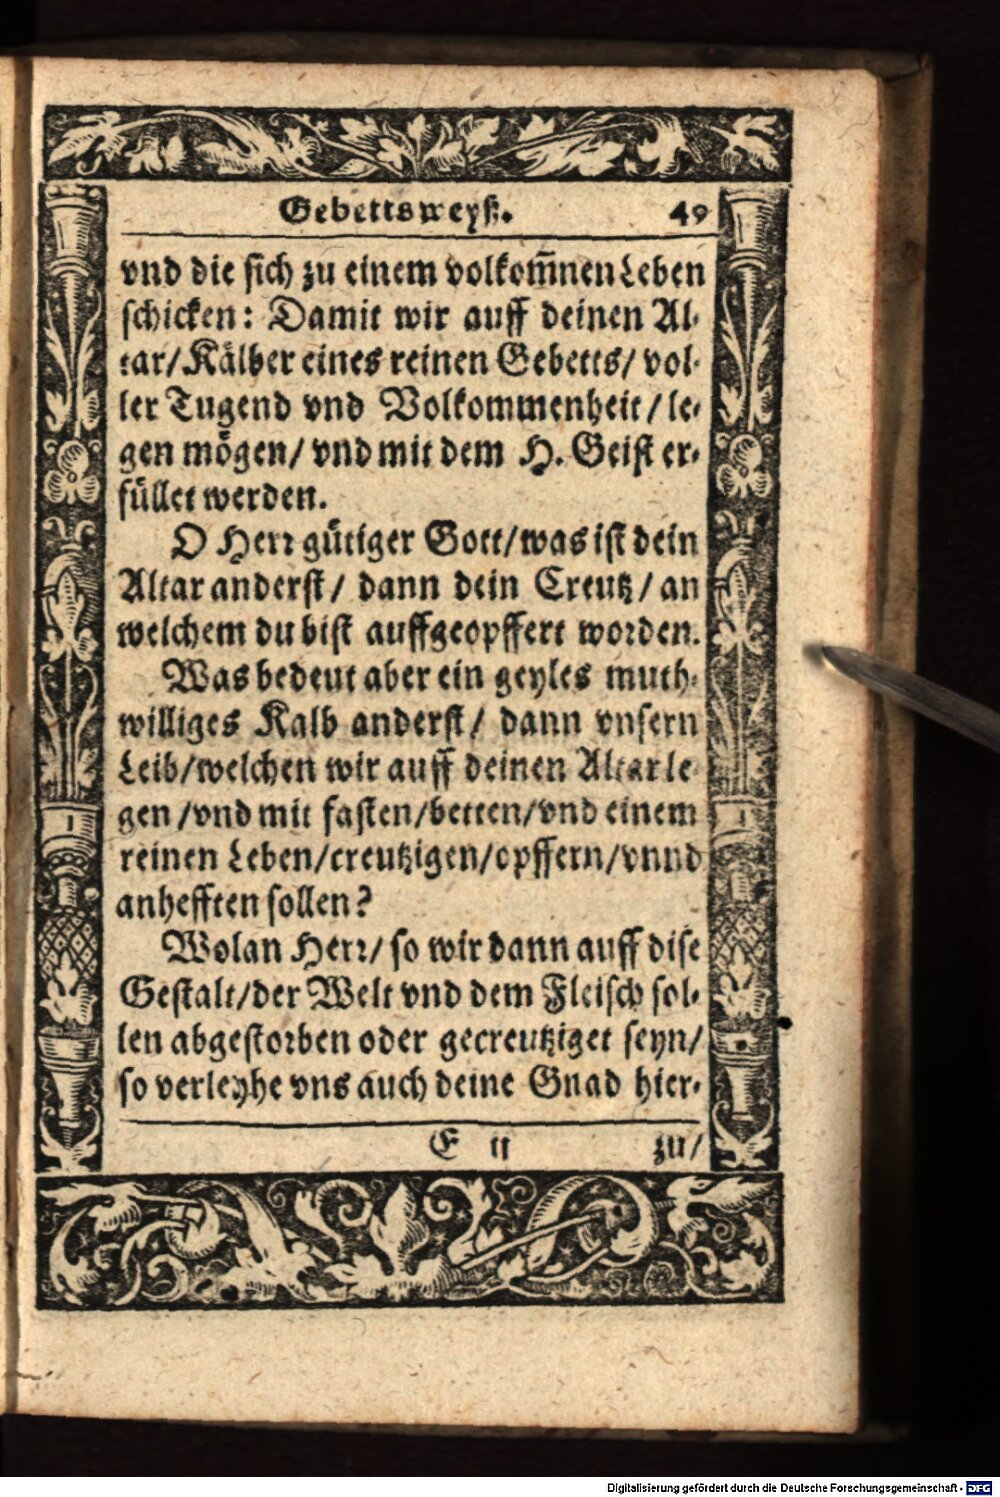 Gebettsweyß. 49
vnd die sich zu einem volkom̃nen Leben
schicken: Damit wir auff deinen Al-
tar/ Kälber eines reinen Gebetts/ vol-
ler Tugend vnd Volkommenheit/ le-
gen mögen/ vnd mit dem H. Geist er-
füllet werden.
O Herr gütiger Gott/ was ist dein
Altar anderst/ dann dein Creutz/ an
welchem du bist auffgeopffert worden.
Was bedeut aber ein geyles muth-
williges Kalb anderst/ dann vnsern
Leib/ welchen wir auff deinen Altar le-
gen/ vnd mit fasten/ betten/ vnd einem
reinen Leben/ creutzigen/ opffern/ vnnd
anhefften sollen?
Wolan Herr/ so wir dann auff dise
Gestalt/ der Welt vnd dem Fleisch sol-
len abgestorben oder gecreutziget seyn/
so verleyhe vns auch deine Gnad hier-
E ij zu/
Digitalisierung gefördert durch die Deutsche Forschungsgemeinschaft - DFG